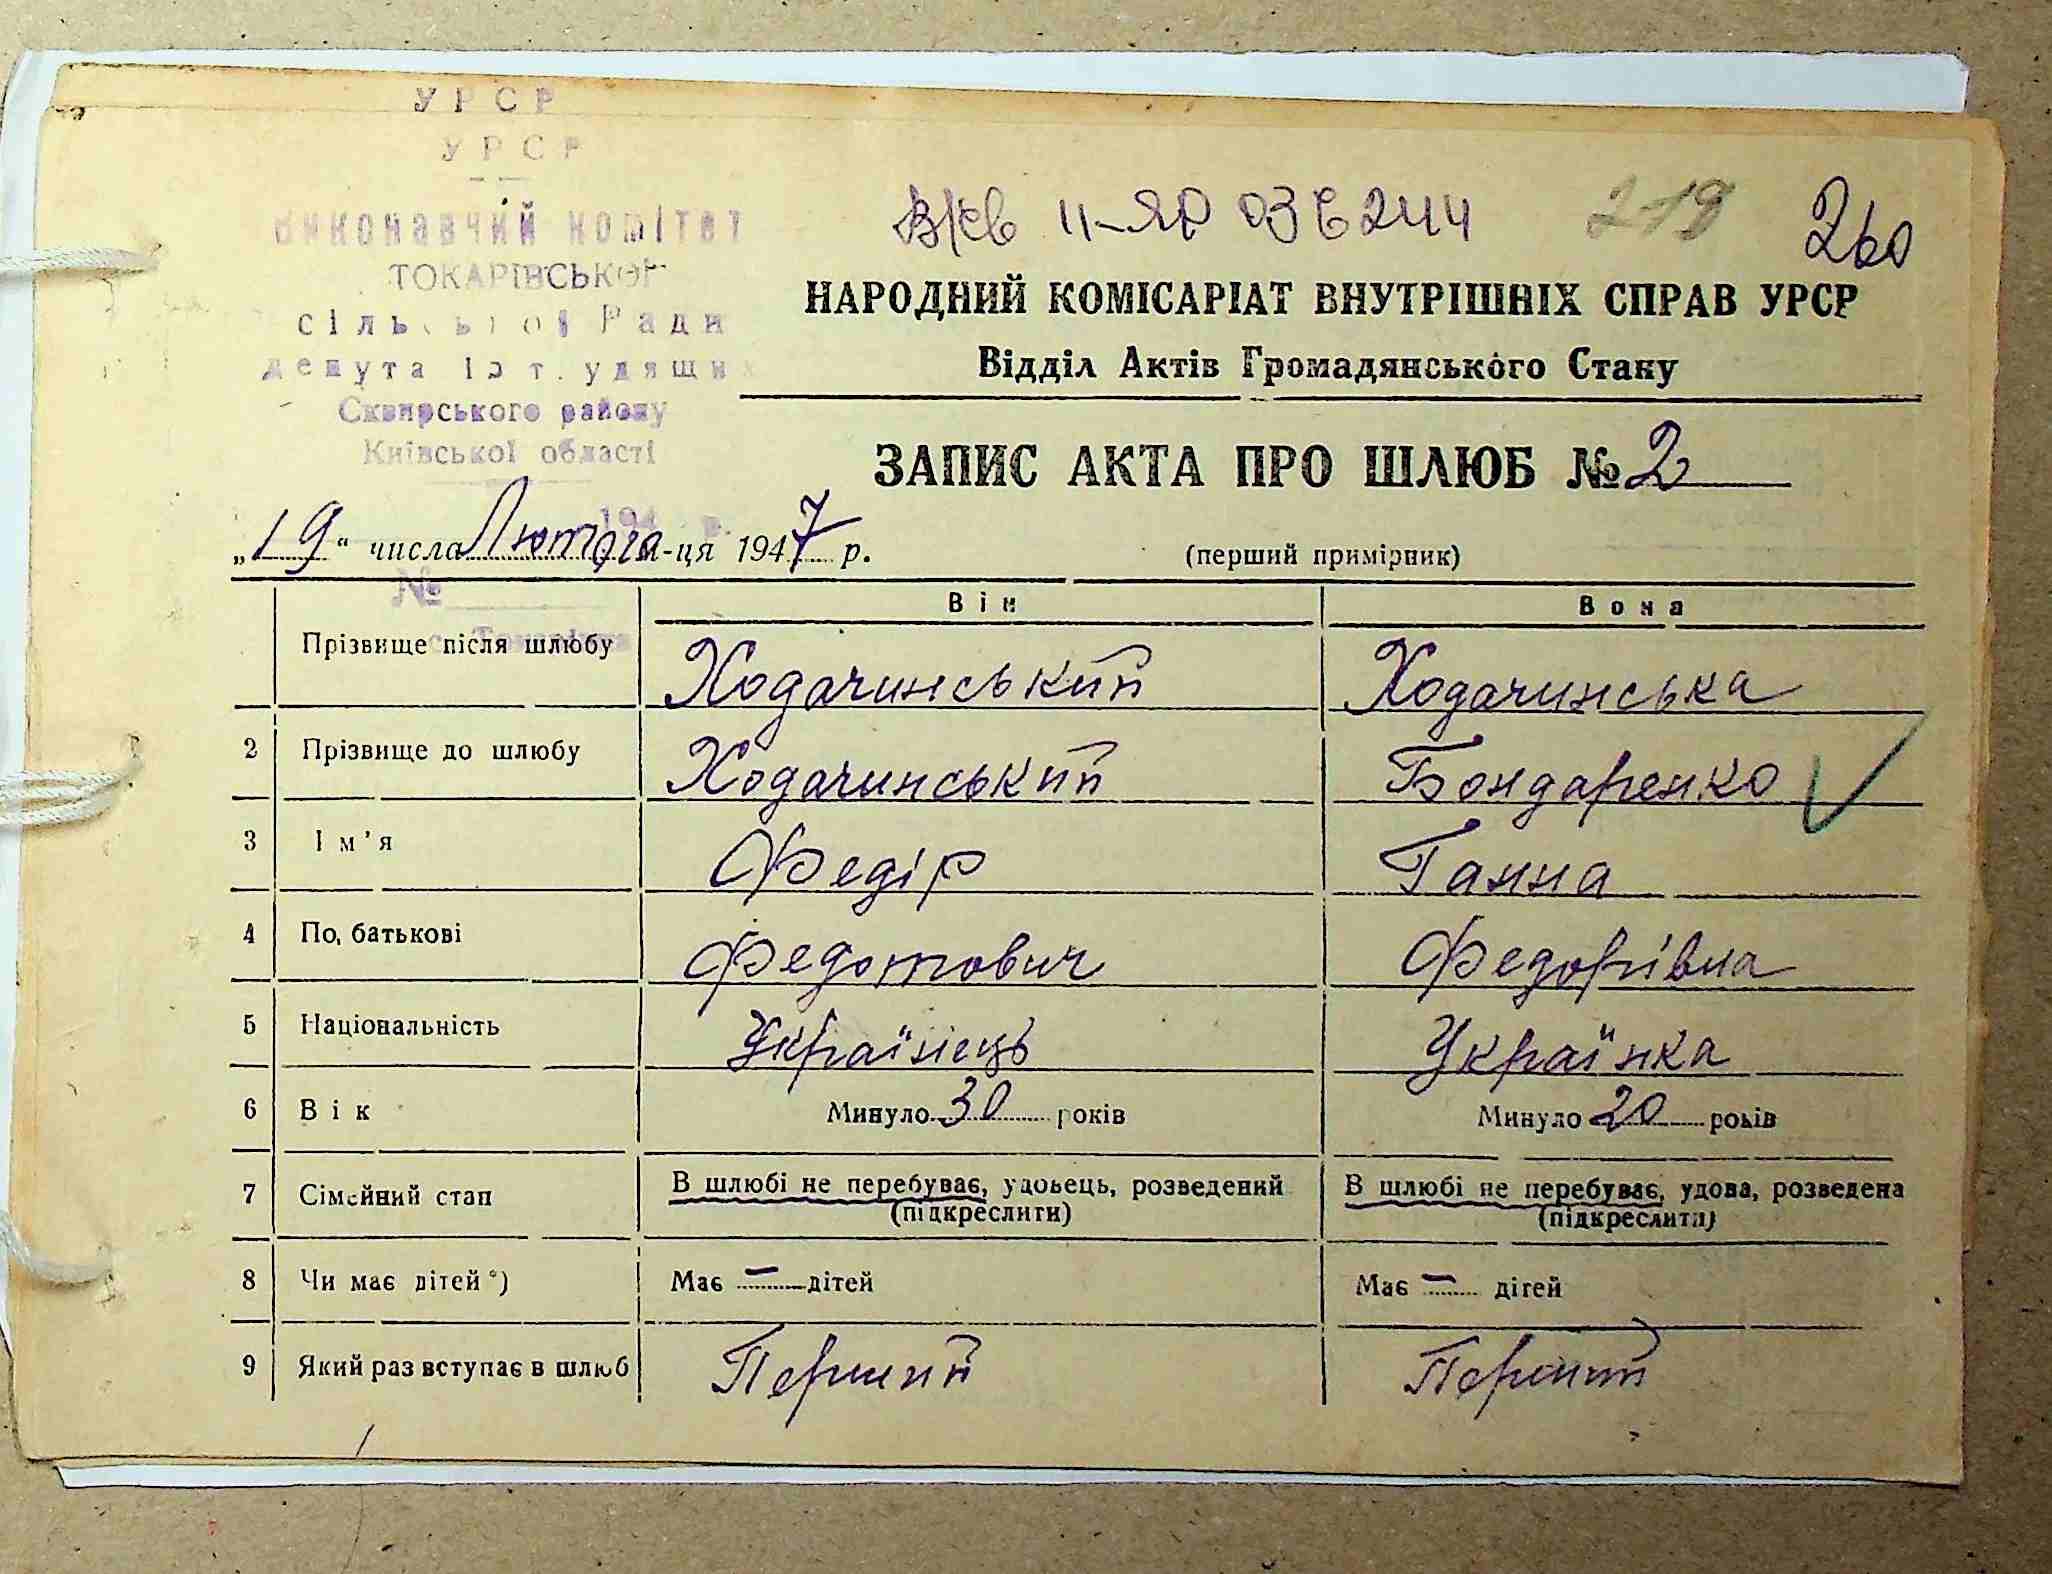 УРСР
УРСР
Виконавчий комітет
ТОКАРІВСЬКОЇ
сільської Ради
депутатів трудящих
Сквирського району
Київської області
194 р.
№
с. Токарівка
219
260
НАРОДНИЙ КОМІСАРІАТ ВНУТРІШНІХ СПРАВ УРСР
Відділ Актів Громадянського Стану
ЗАПИС АКТА ПРО ШЛЮБ № 2
„19“ числа Лютого м-ця 1947 р. (перший примірник)
Він Вона
Прізвище після шлюбу Ходачинський Ходачинська
2 Прізвище до шлюбу Ходачинський Бондаренко
3 Ім'я Федір Ганна
4 По, батькові Федотович Федорівна
5 Національність Українець Українка
6 Вік Минуло 30 років Минуло 20 років
7 Сімейний стан В шлюбі не перебуває, удовець, розведений (підкреслити) В шлюбі не перебуває, удова, розведена (підкреслити)
8 Чи має дітей*) Має — дітей Має — дітей
9 Який раз вступає в шлюб Перший Перший